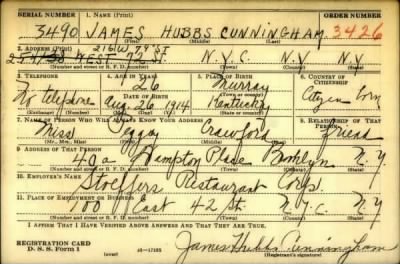 SERIAL NUMBER 1. NAME (Print) ORDER NUMBER
3490 JAMES HUBBS CUNNINGHAM 3426
(First) (Middle) (Last)
2. ADDRESS (Print) 216 W 79 ST
WEST 72 ST. N.Y.C. N.Y. N.Y.
(Number and street or R. F. D. number) (Town) (County) (State)
3. TELEPHONE 4. AGE IN YEARS 5. PLACE OF BIRTH 6. COUNTRY OF CITIZENSHIP
26 Murray
No telephone DATE OF BIRTH (Town or county)
Aug. 26 1914 Kentucky Citizen born
(Exchange) (Number) (Mo.) (Day) (Yr.) (State or country)
7. NAME OF PERSON WHO WILL ALWAYS KNOW YOUR ADDRESS 8. RELATIONSHIP OF THAT PERSON
Miss Peggy Crawford friend
(Mr., Mrs., Miss) (First) (Middle) (Last)
9. ADDRESS OF THAT PERSON
40a Hampton Place Brooklyn N.Y
(Number and street or R. F. D. number) (Town) (County) (State)
10. EMPLOYER'S NAME
Stoeffers Restaurant Corp.
11. PLACE OF EMPLOYMENT OR BUSINESS
100 East 42 St. N.Y.C. N.Y
(Number and street or R. F. D. number) (Town) (County) (State)
I AFFIRM THAT I HAVE VERIFIED ABOVE ANSWERS AND THAT THEY ARE TRUE.
REGISTRATION CARD
D. S. S. Form 1 (over) 16—17105 James Hubbs Cunningham
(Registrant's signature)